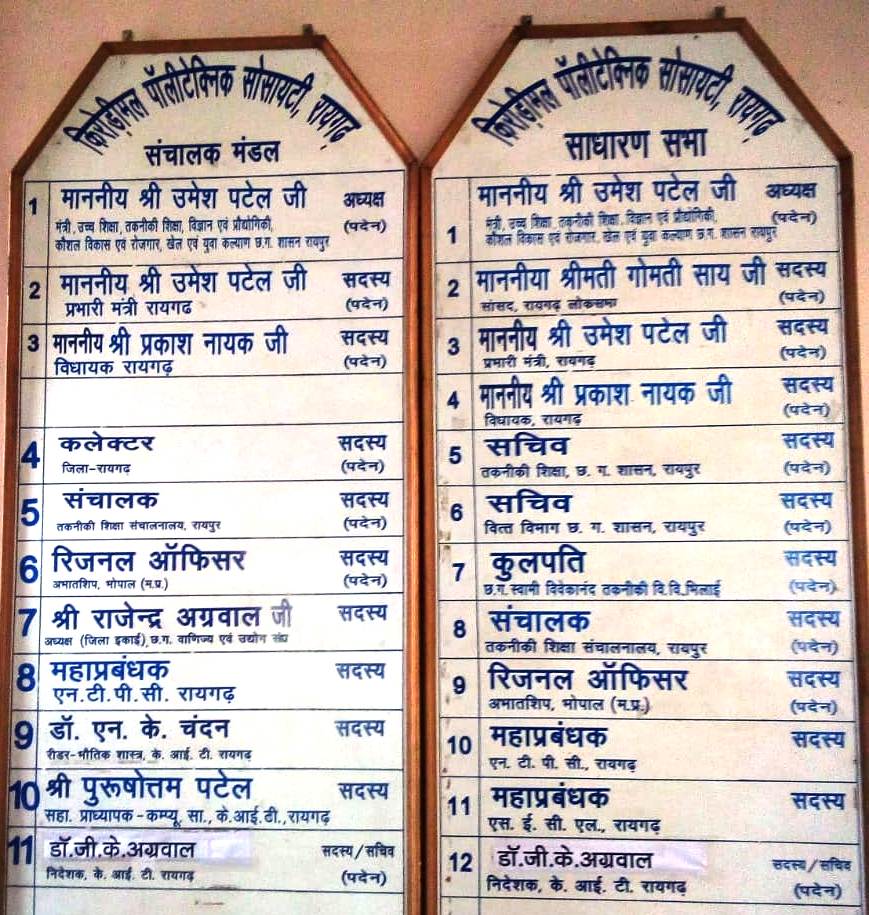 किरोड़ीमल पॉलीटेक्निक सोसायटी, रायगढ़
संचालक मंडल
1 माननीय श्री उमेश पटेल जी अध्यक्ष
मंत्री, उच्च शिक्षा, तकनीकी शिक्षा, विज्ञान एवं प्रौद्योगिकी, (पदेन)
कौशल विकास एवं रोजगार, खेल एवं युवा कल्याण छ.ग. शासन रायपुर
2 माननीय श्री उमेश पटेल जी सदस्य
प्रभारी मंत्री रायगढ (पदेन)
3 माननीय श्री प्रकाश नायक जी सदस्य
विधायक रायगढ़ (पदेन)
4 कलेक्टर सदस्य
जिला-रायगढ़ (पदेन)
5 संचालक सदस्य
तकनीकी शिक्षा संचालनालय, रायपुर (पदेन)
6 रिजनल ऑफिसर सदस्य
अभातशिप, भोपाल (म.प्र.) (पदेन)
7 श्री राजेन्द्र अग्रवाल जी सदस्य
अध्यक्ष (जिला इकाई), छ.ग. वाणिज्य एवं उद्योग संघ
8 महाप्रबंधक सदस्य
एन.टी.पी.सी. रायगढ़
9 डॉ. एन. के. चंदन सदस्य
रीडर-भौतिक शास्त्र, के. आई. टी. रायगढ़
10 श्री पुरूषोत्तम पटेल सदस्य
सहा. प्राध्यापक-कम्प्यू. सा., के.आई.टी., रायगढ़
11 डॉ.जी.के.अग्रवाल सदस्य/सचिव
निदेशक, के. आई. टी. रायगढ़ (पदेन)
किरोड़ीमल पॉलीटेक्निक सोसायटी, रायगढ़
साधारण सभा
1 माननीय श्री उमेश पटेल जी अध्यक्ष
मंत्री, उच्च शिक्षा, तकनीकी शिक्षा, विज्ञान एवं प्रौद्योगिकी, (पदेन)
कौशल विकास एवं रोजगार, खेल एवं युवा कल्याण छ.ग. शासन रायपुर
2 माननीया श्रीमती गोमती साय जी सदस्य
सांसद, रायगढ़ लोकसभा (पदेन)
3 माननीय श्री उमेश पटेल जी सदस्य
प्रभारी मंत्री, रायगढ़ (पदेन)
4 माननीय श्री प्रकाश नायक जी सदस्य
विधायक, रायगढ़ (पदेन)
5 सचिव सदस्य
तकनीकी शिक्षा, छ. ग. शासन, रायपुर (पदेन)
6 सचिव सदस्य
वित्त विभाग छ. ग. शासन, रायपुर (पदेन)
7 कुलपति सदस्य
छ.ग. स्वामी विवेकानंद तकनीकी वि.वि.भिलाई (पदेन)
8 संचालक सदस्य
तकनीकी शिक्षा संचालनालय, रायपुर (पदेन)
9 रिजनल ऑफिसर सदस्य
अभातशिप, भोपाल (म.प्र.) (पदेन)
10 महाप्रबंधक सदस्य
एन. टी. पी. सी., रायगढ़
11 महाप्रबंधक सदस्य
एस. ई. सी. एल., रायगढ़
12 डॉ.जी.के.अग्रवाल सदस्य/सचिव
निदेशक, के. आई. टी. रायगढ़ (पदेन)